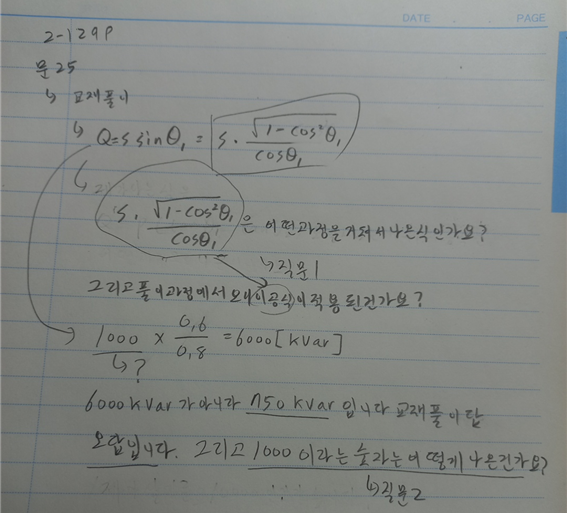 DATE . . PAGE
2-129P
문25
↳ 교재풀이
↳ Q=S sinθ₁ = S · √(1-cos²θ₁) / cosθ₁
S · √(1-cos²θ₁) / cosθ₁ 은 어떤과정을 거쳐서 나온식인가요?
↳질문1
그리고 풀이과정에서 이공식이 적용된건가요?
→ 1000 × 0,6 / 0,8 = 6000 [kVar]
↳?
6000kVar가 아니라 750 kVar 입니다 교재풀이답
오답입니다. 그리고 1000이라는 숫자는 어떻게 나온건가요?
↳질문2